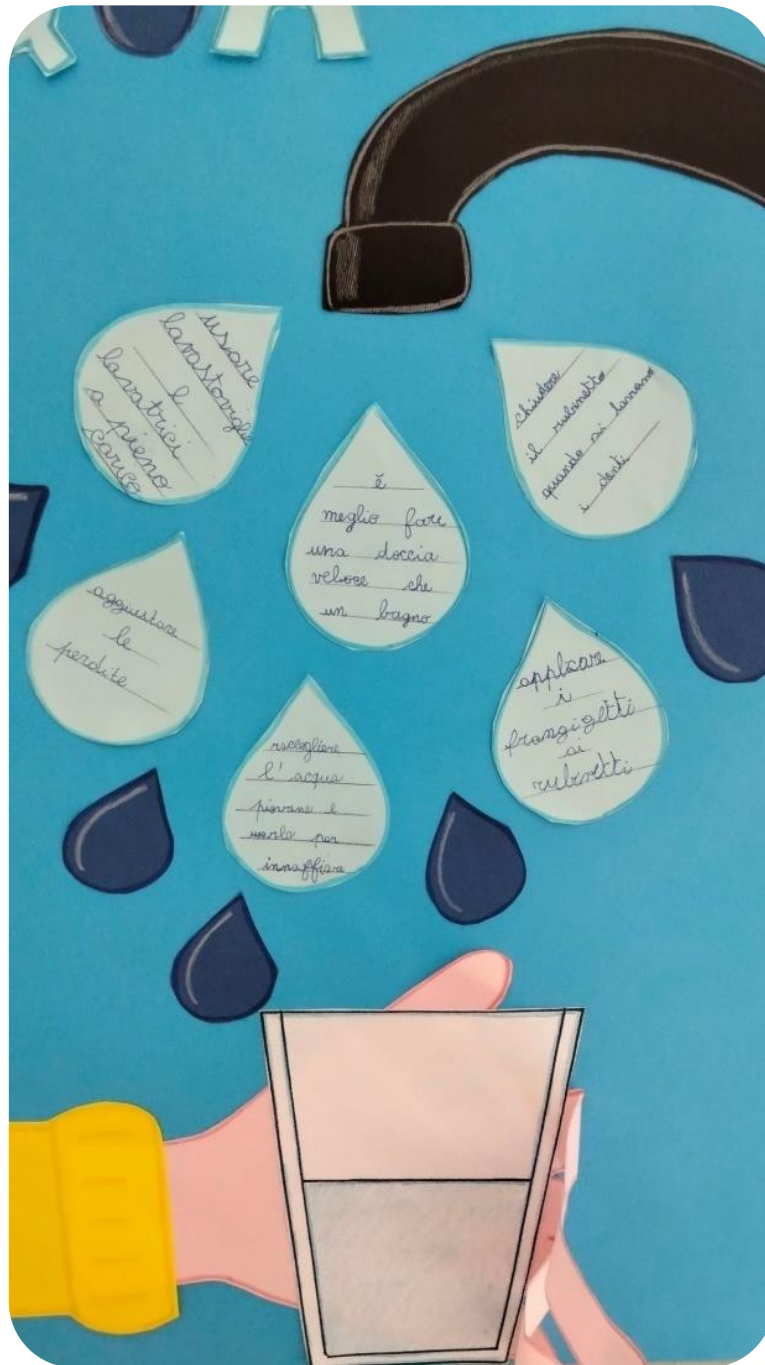 usare
lavastoviglie
e
lavatrici
a pieno
carico
chiudere
il rubinetto
quando si lavano
i denti
è
meglio fare
una doccia
veloce che
un bagno
aggiustare
le
perdite
applicare
i
frangigetti
ai
rubinetti
raccogliere
l'acqua
piovana e
usarla per
innaffiare